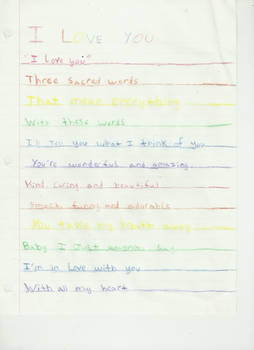 I LOVE YOU
"I love you"
Three sacred words
That mean everything
With these words
I'll tell you what I think of you
You're wonderful and amazing
Kind caring and beautiful
Smart funny and adorable
You take my breath away
Baby I just wanna say
I'm in Love with you
With all my heart